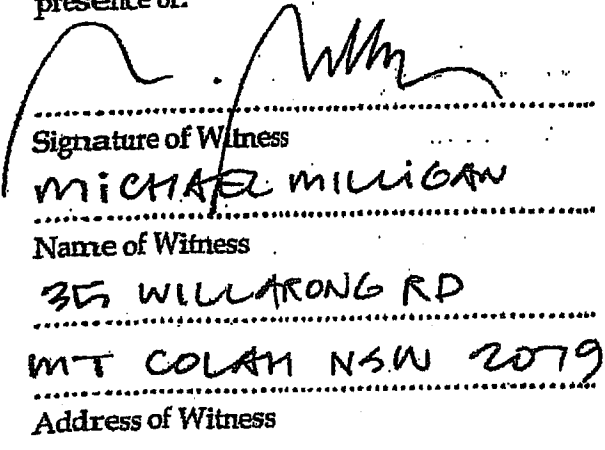 presence of:
Signature of Witness
MiCHAEL MILLiGAN
Name of Witness
35 WILLARONG RD
MT COLAH NSW 2079
Address of Witness